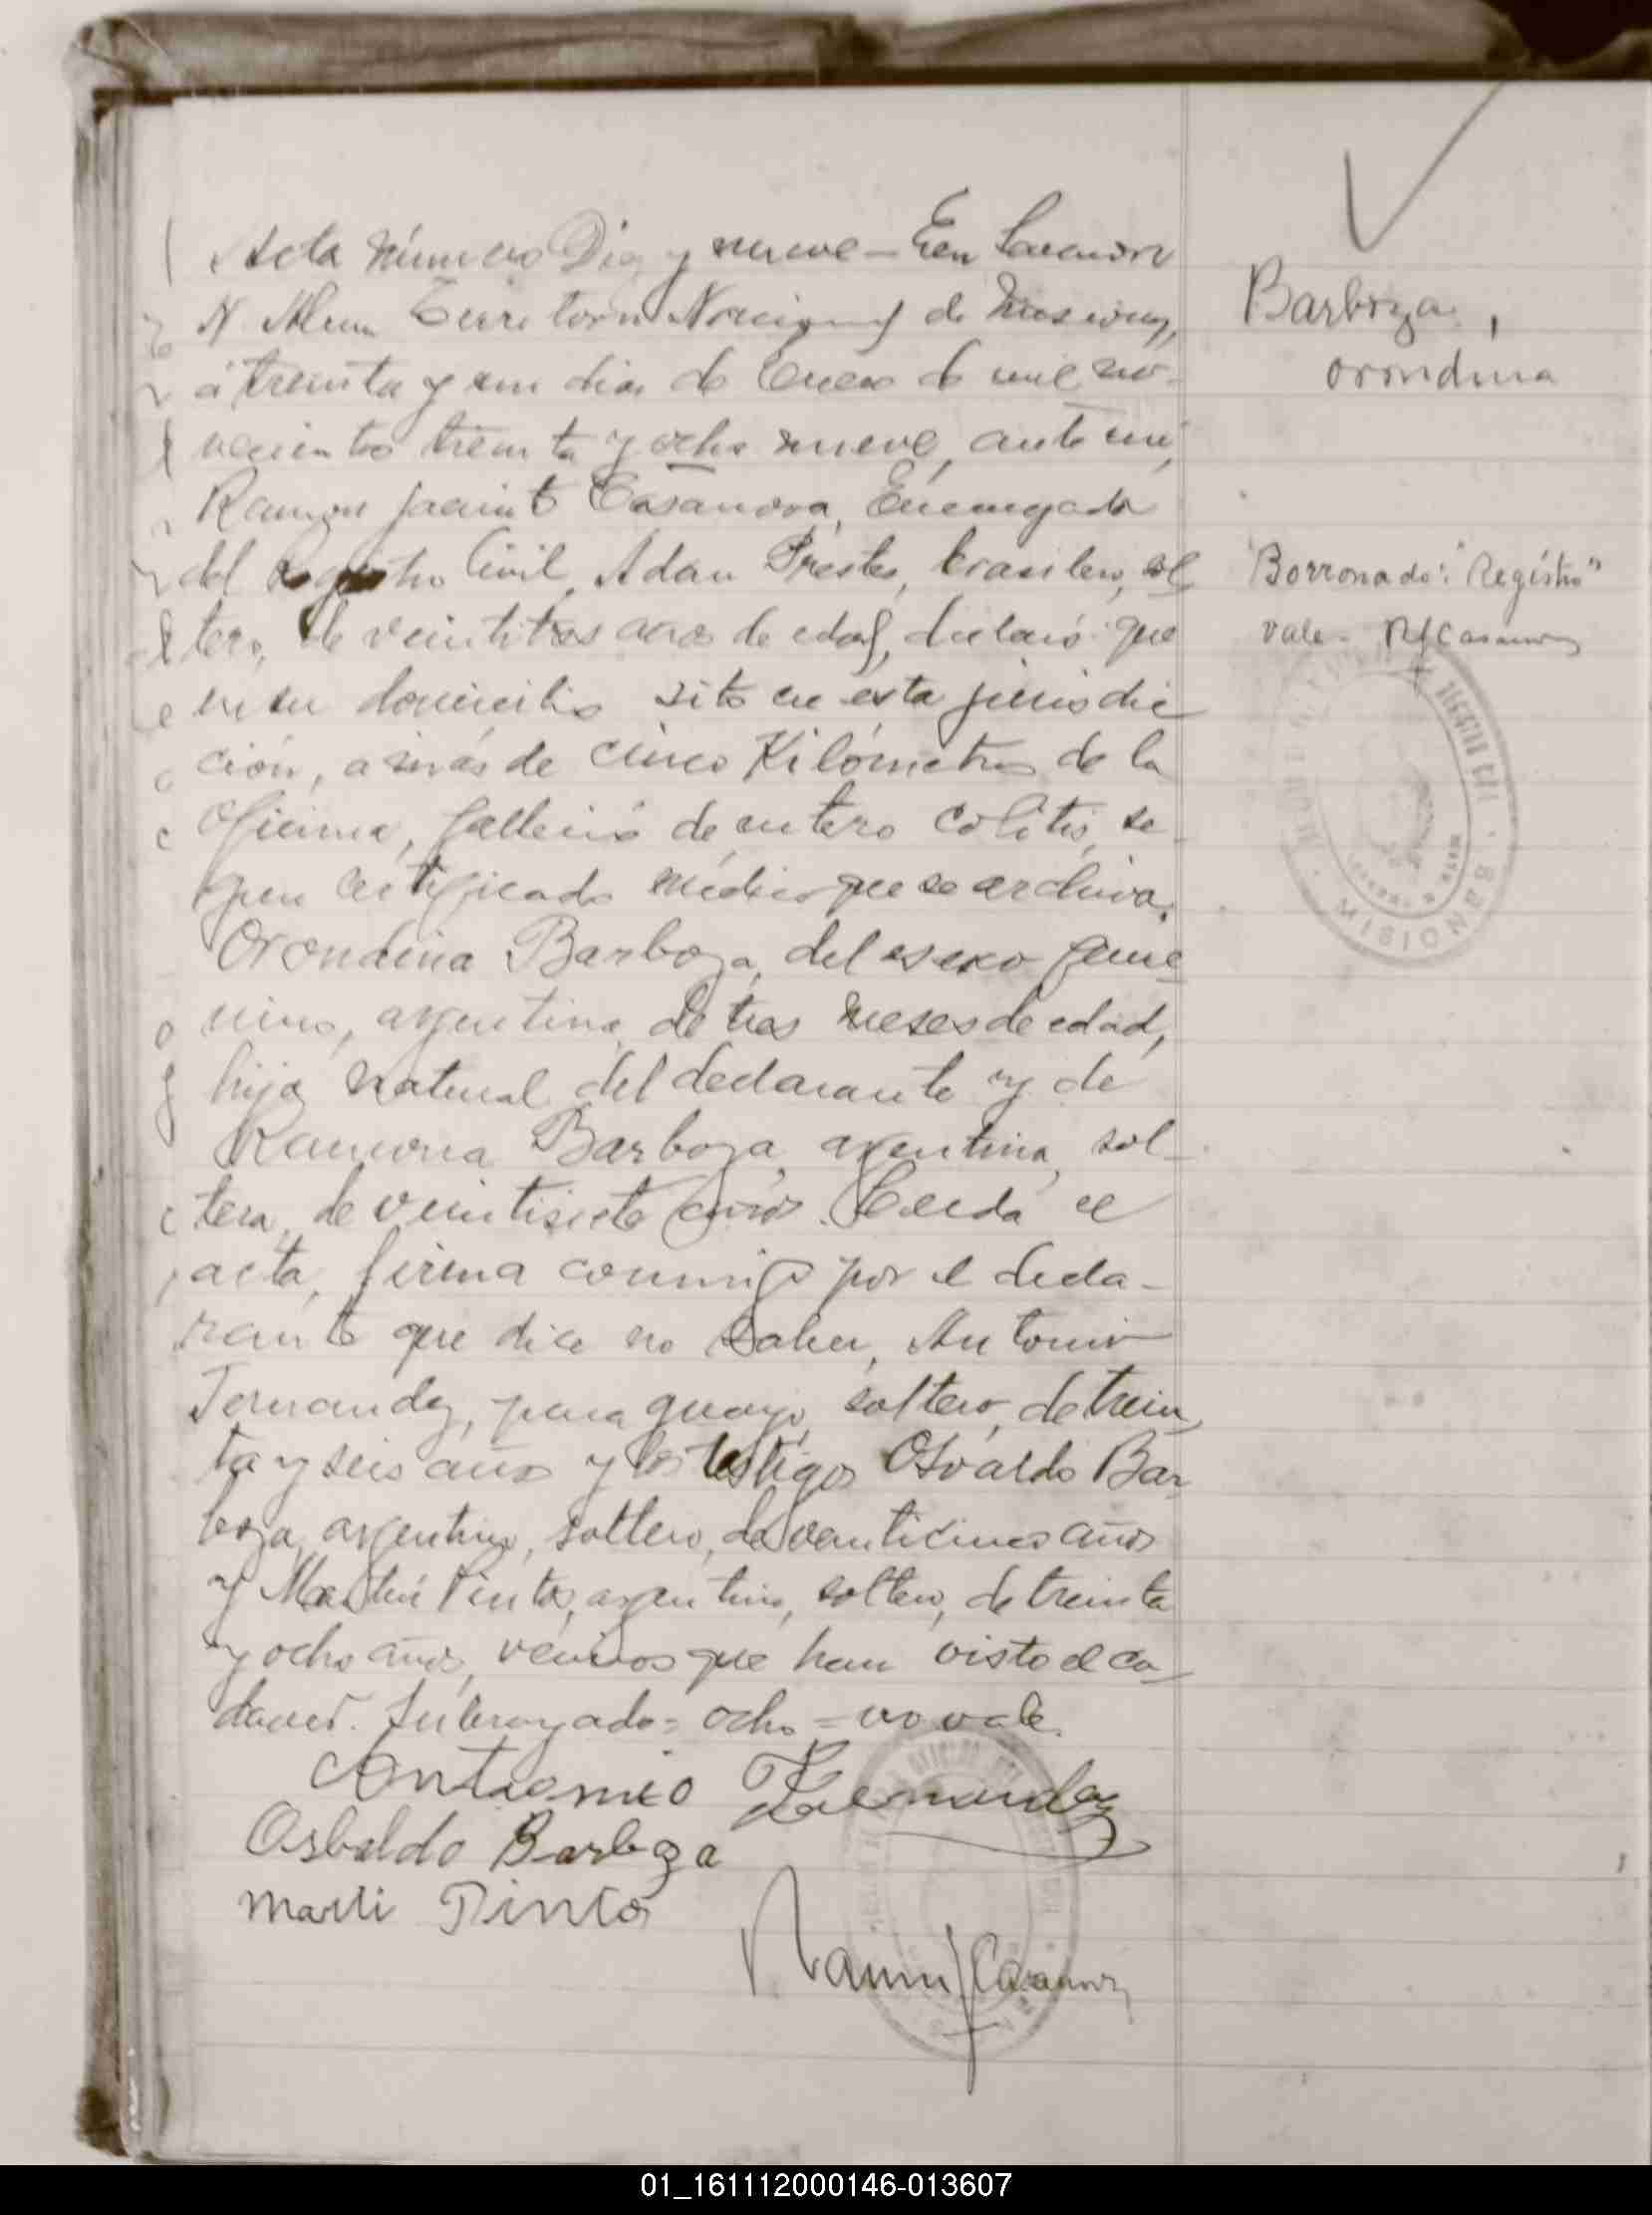 Acta número Diez y nueve — En Leandro
N. Alem Territorio Nacional de Misiones,
á treinta y un dias de Enero de mil no-
vecientos treinta y ocho nueve, ante mi,
Ramon Jacinto Casanova, Encargado
del Registro Civil, Adan Prestes, brasilero, sol
tero, de veintitres años de edad, declaró que
en su domicilio sito en esta jurisdic
ción, a más de cinco Kilómetros de la
Oficina, falleció de entero colitis, se-
gun certificado médico que se archiva,
Orondina Barboza, del sexo feme
nino, argentina, de tres meses de edad,
hija natural del declarante y de
Ramona Barboza, argentina, sol-
tera, de veintisiete años. Leida el
acta, firma conmigo por el decla-
rante que dice no saber, Antonio
Fernandez, paraguayo, soltero, de trein
ta y seis años y los testigos Osvaldo Bar
boza, argentino, soltero, de veinticinco años
y Martín Pintos, argentino, soltero, de treinta
y ocho años, vecinos que han visto el ca
daver. Subrayado = ocho = no vale.
Antonio Fernandez
Osbaldo Barboza
Marti Pinto
Ramon J Casanova
Barboza,
Orondina
"Borronado": "Registro"
vale - R J Casanova
MISIONES
01_161112000146-013607